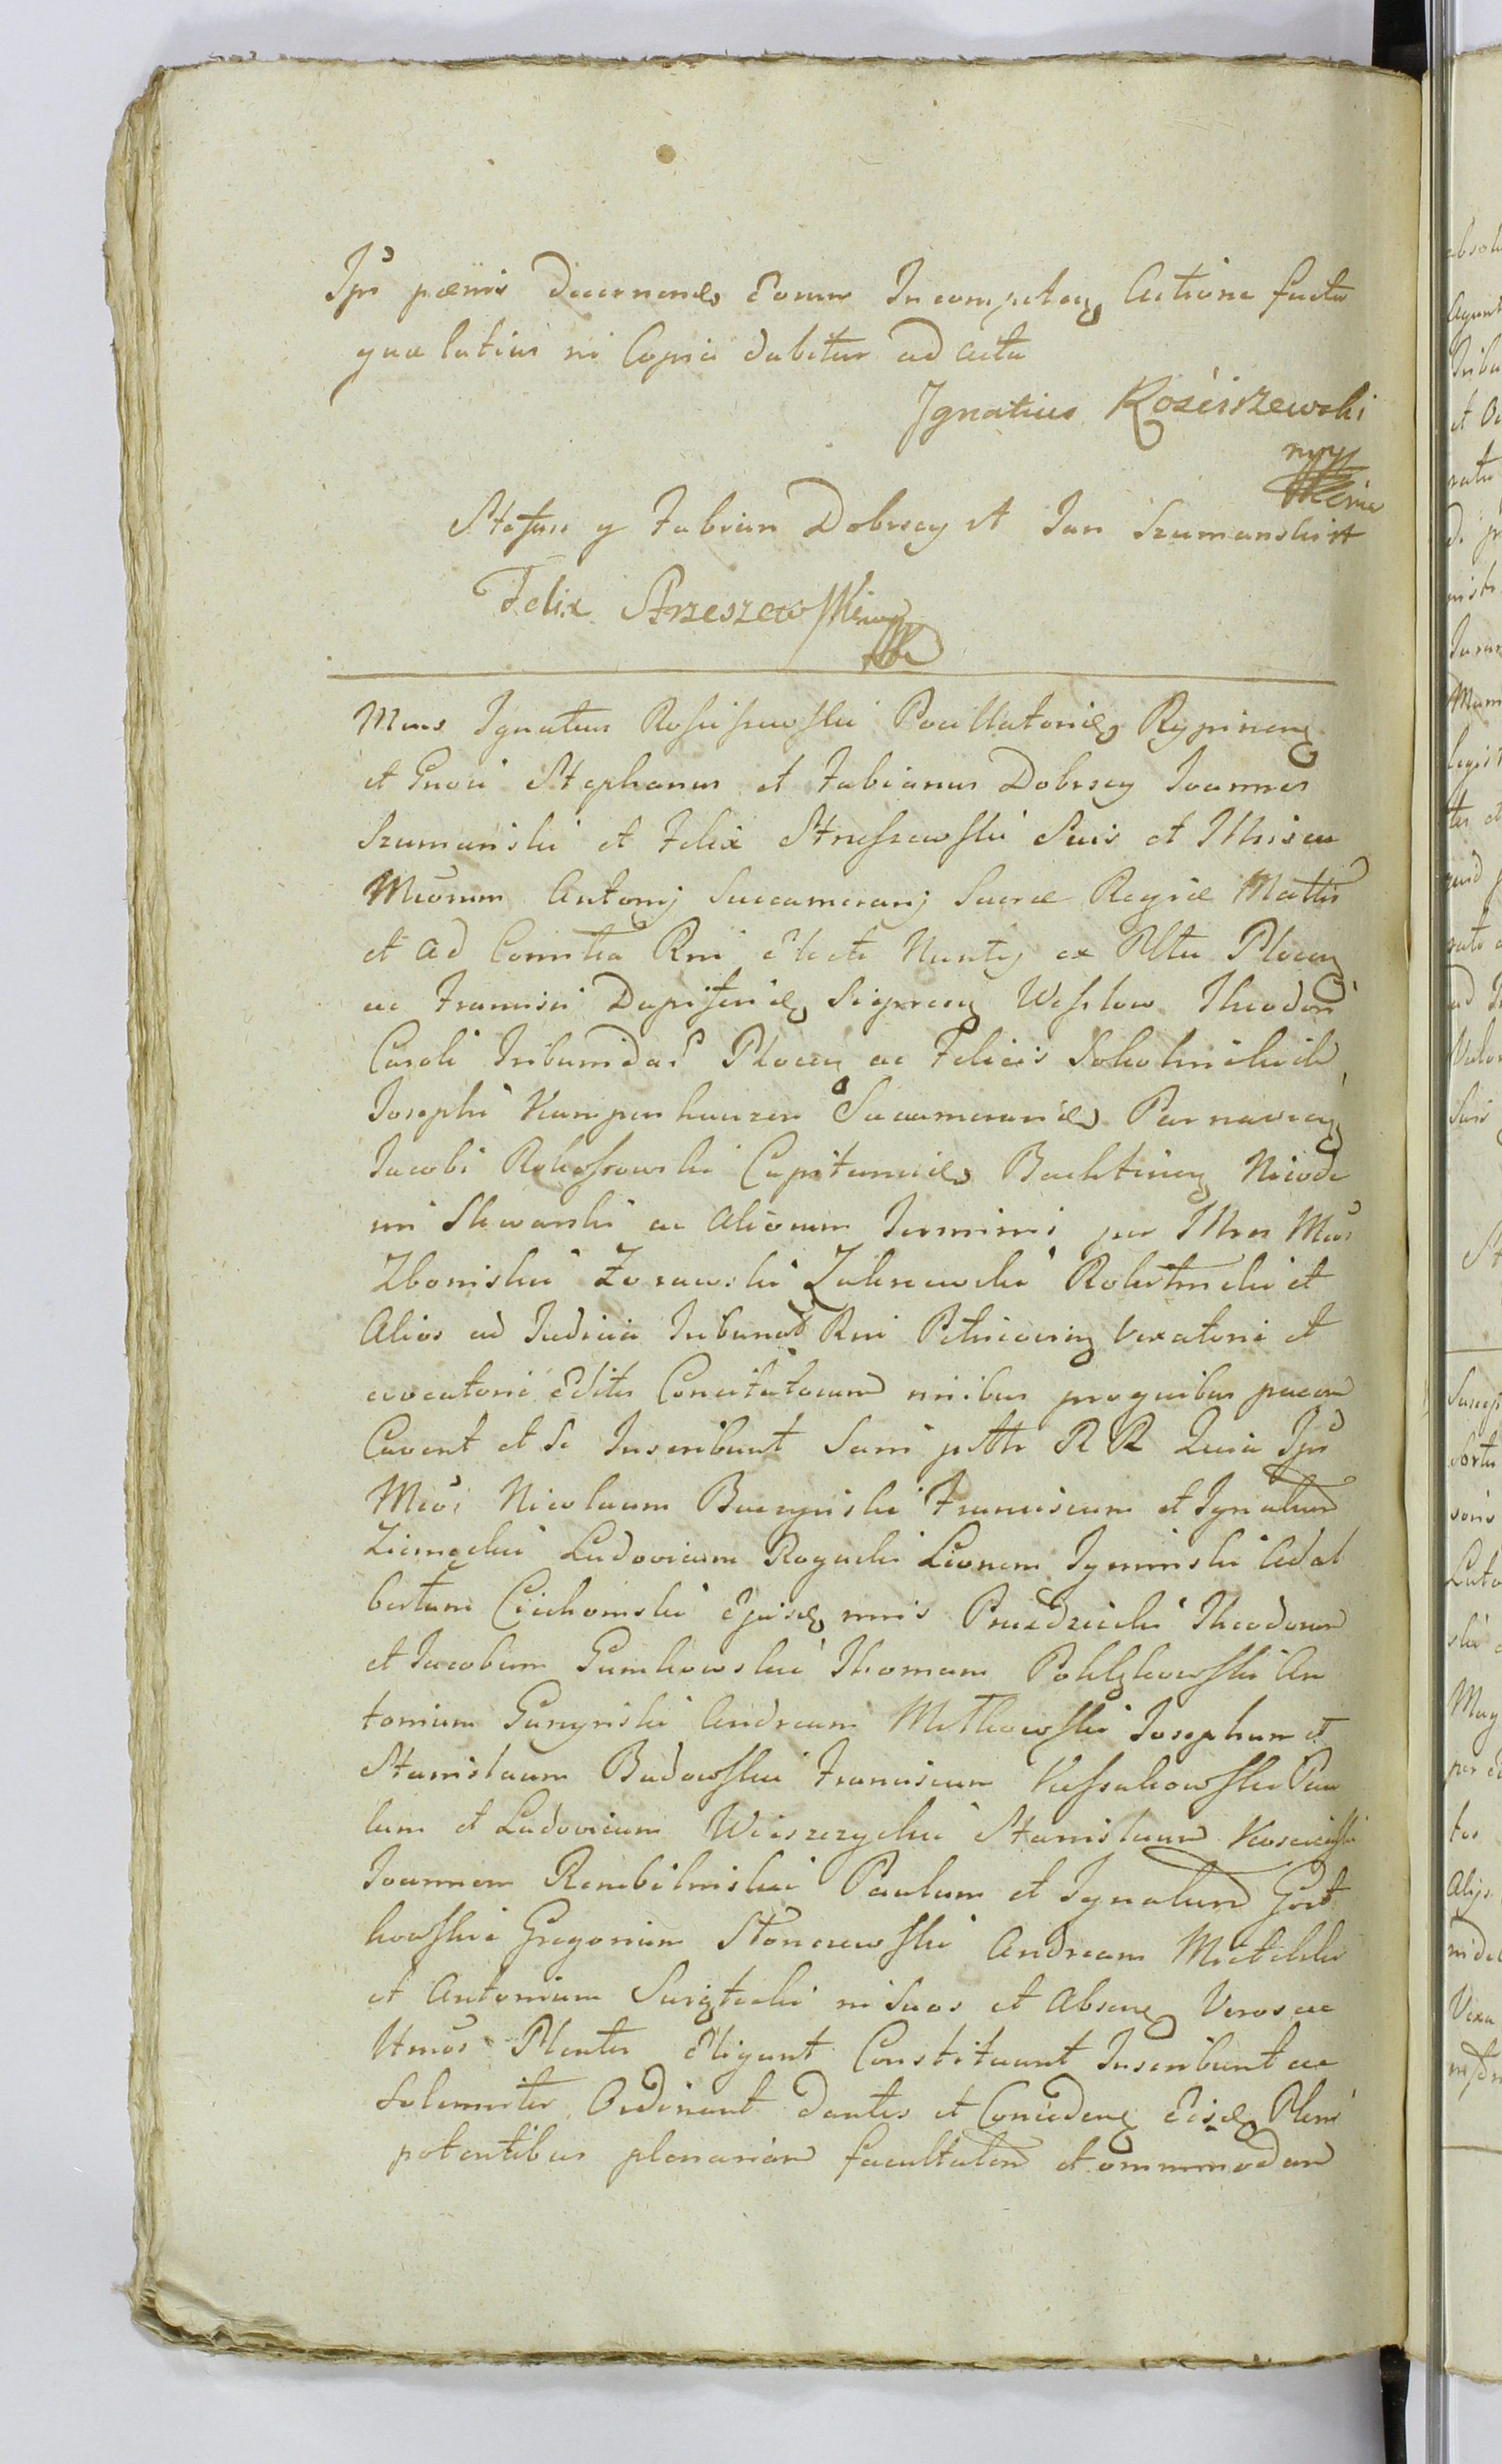 Ips pænis decernend Eorum Incompeten Actione facta
quæ latius in Copia dabitur ad acta
Ignatius Rościszewski
mpp
Stefan y Fabian Dobrscy it Jan Szumanski it
Felix Strzeszewski
Mcus Ignatius Rosciszewski Pocillatorid Rypinen
et Gnosi Stephanus et Fabianus Dobrscy Joannes
Szumański et Felix Strzeszewski Suis et Illris ac
Mcorum Antonij Succamerarij Sacræ Regiæ Mattis
et ad Comitia Rni Electi Nuntij ex Pltu Plocen
ac Francisci Dapiferid Sierpcen Weslow Theodori
Caroli Tribunidas Plocen ac Felicis Sokolnickich
Josephi Kampenhauzen Succamerarid Parnavien
Jacobi Rokossowski Capitanid Bachtinen Nicode
mi Skwarski ac Aliorum Termini per Illres Mcos
Zboiński Zorawski Zakrzewski Rokitnicki et
Alios ad Judicia Tribunat Rni Petricovien Vexatorie et
evocatorie Editis Concitatorum nnibus proquibus pacem
Cavent et se Inscribunt Sani pttr R R Quia Ips
Mcos Nicolaum Baczyński Franciscum et Ignatium
Ziemecki Ludovicum Rogacki Leonem Zyminski Adal
bertum Cichomski Ejusd nnis Przedziecki Theodorum
et Jacobum Gumkowski Thomam Pohlzkowski An
tonium Gurzyński Andream Mlkowski Josephum et
Stanislaum Budowski Franciscum Kossakowski Pau
lum et Ludovicum Wieszczycki Stanislaum
Joannem Rembiliński Paulum et Ignatium Gost
kowski Gregorium Stonczewski Andream Mietelski
et Antonium Swiętecki in Suos et Absenq Veros ac
Ltmos Plenter Eligunt Constituunt Inscribunt ac
Solemniter Ordinant dantes et Conceden Eisd Pleni
potentibus plenariam facultatem et ommimodam